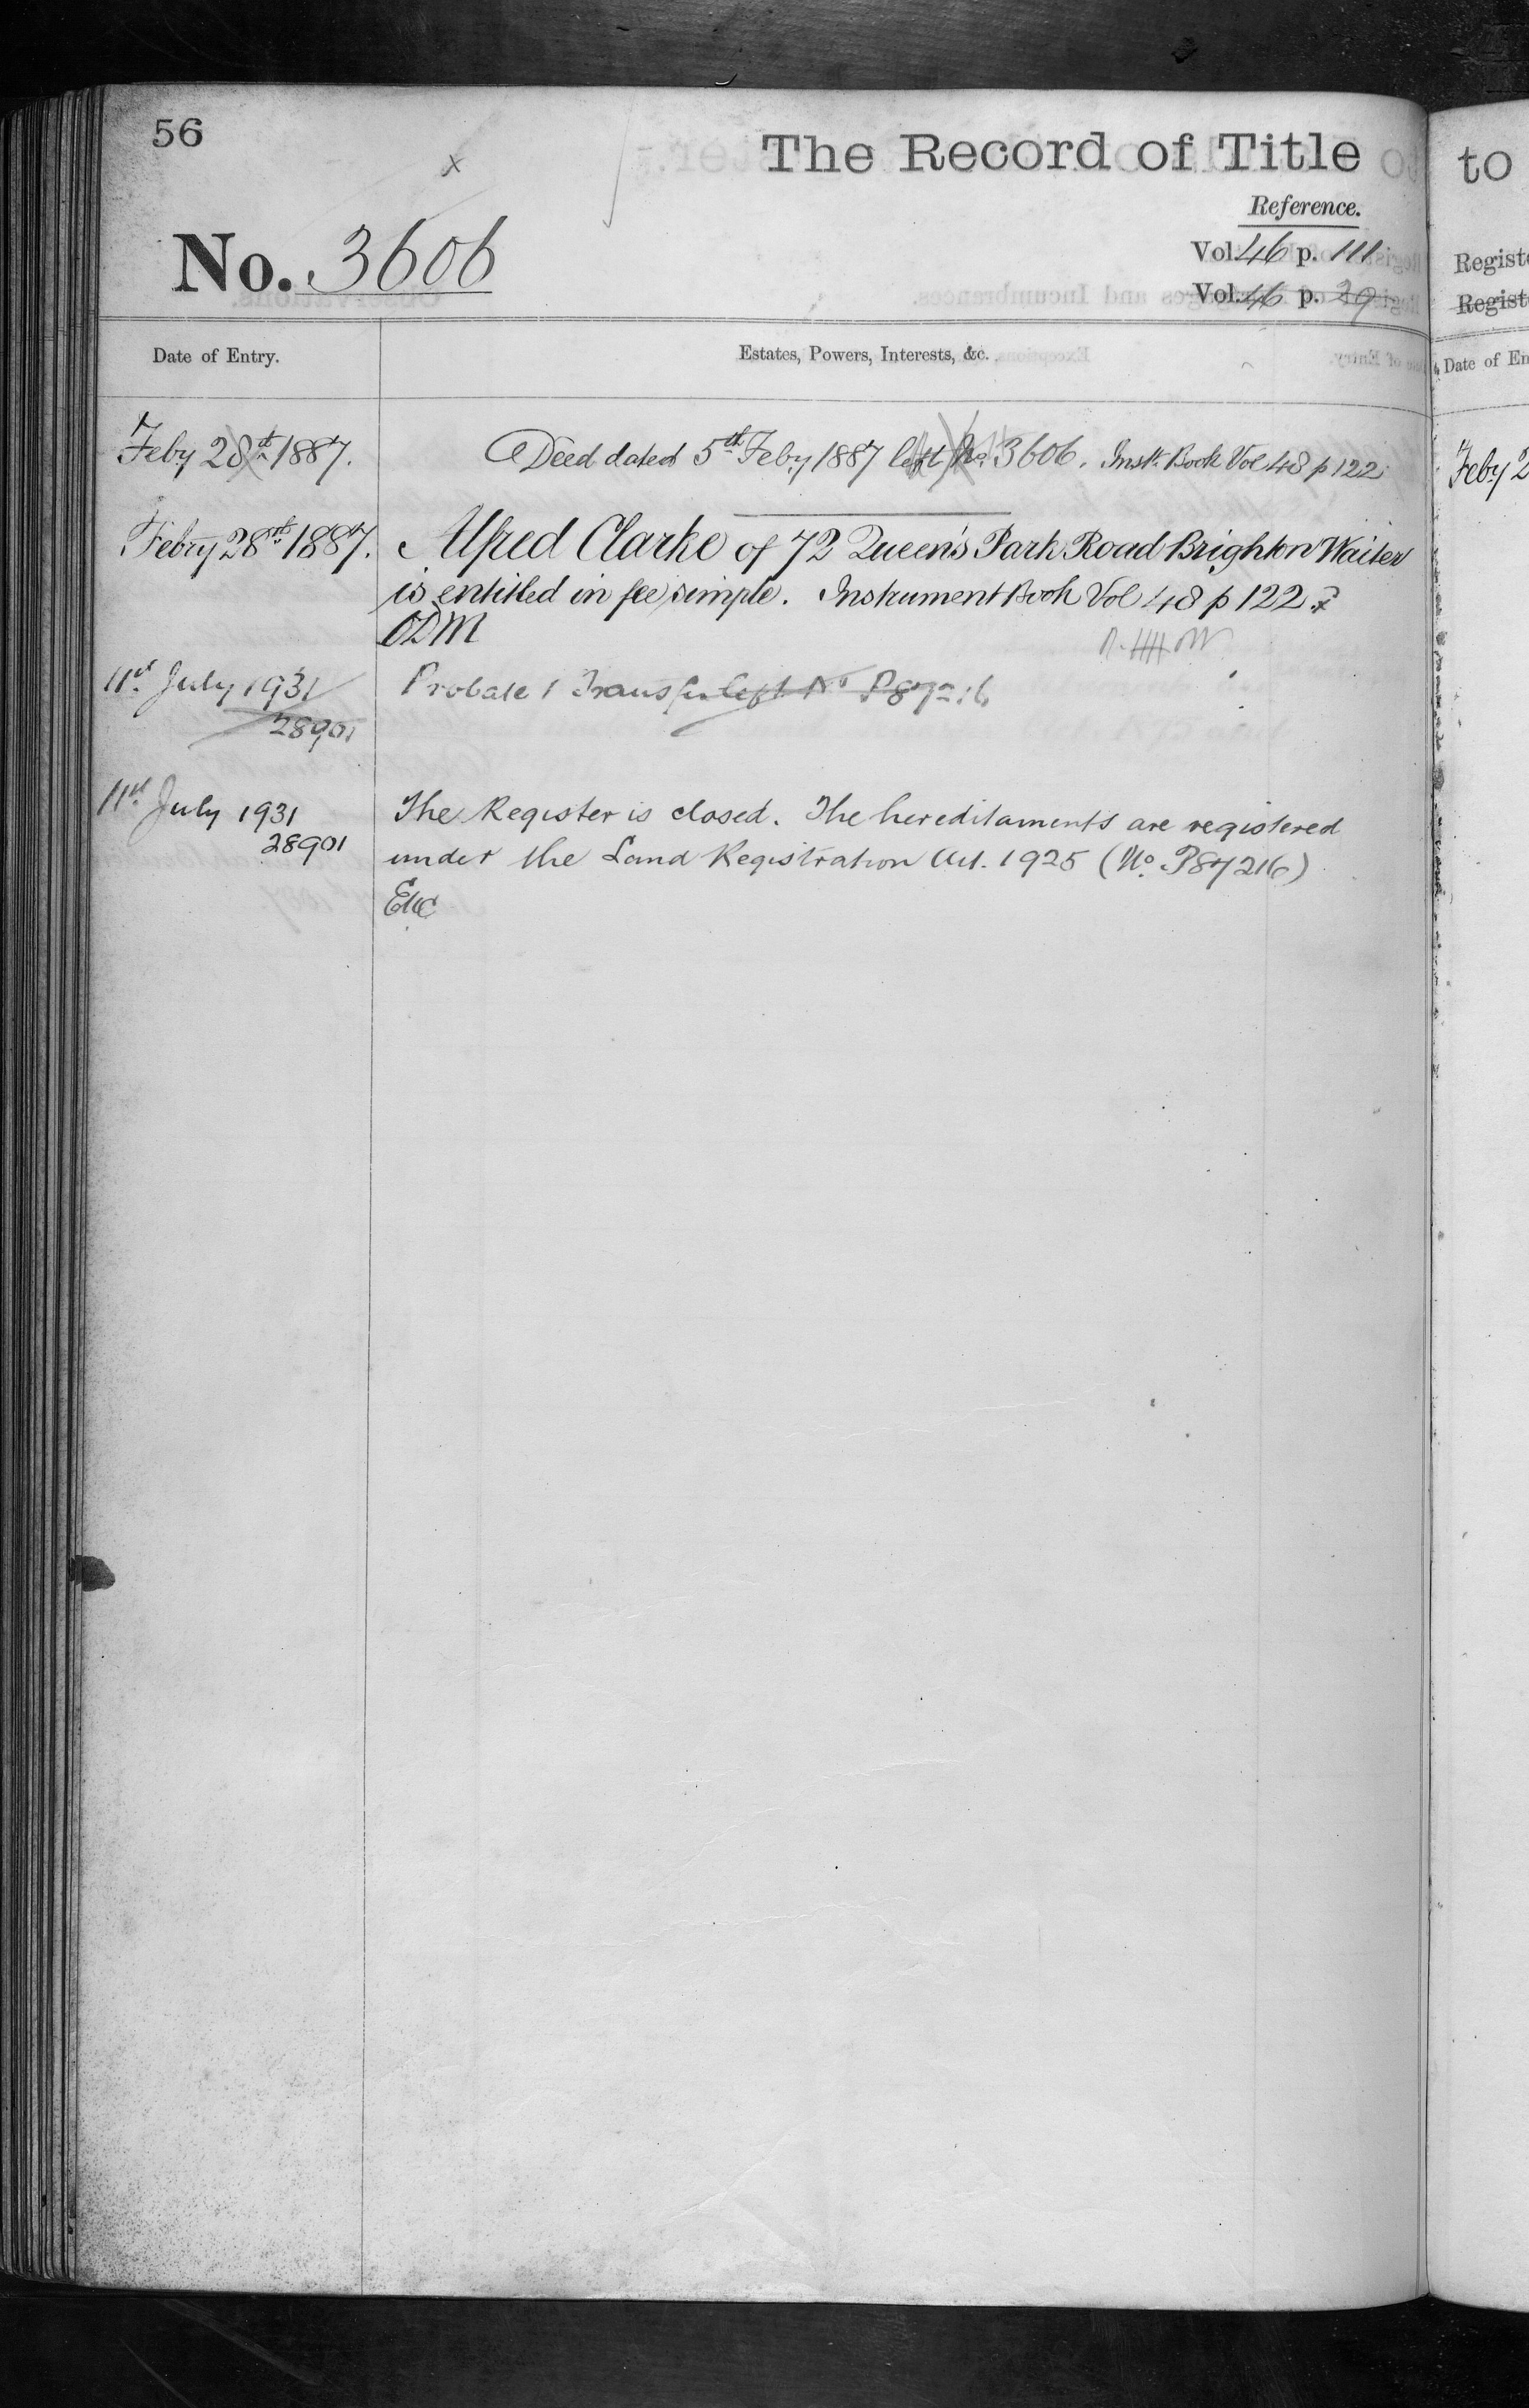 56
The Record of Title
Reference.
No. 3606
Vol. 46 p. 111
Vol. 46 p. 29
Date of Entry.
Estates, Powers, Interests, &c.
Feby 28th 1887.
Deed dated 5th Feby 1887 left No. 3606. Inst. Book Vol 48 p 122
Febry 28th 1887.
Alfred Clarke of 72 Queen's Park Road Brighton Waiter
is entitled in fee simple. Instrument Book Vol 48 p 122.
ODM
11th July 1931
28901
Probate / Transfer left No P87216
11th July 1931
28901
The Register is closed. The hereditaments are registered
under the Land Registration Act. 1925 (No. P87216)
to
Registe
Registe
Date of En
Feby 2